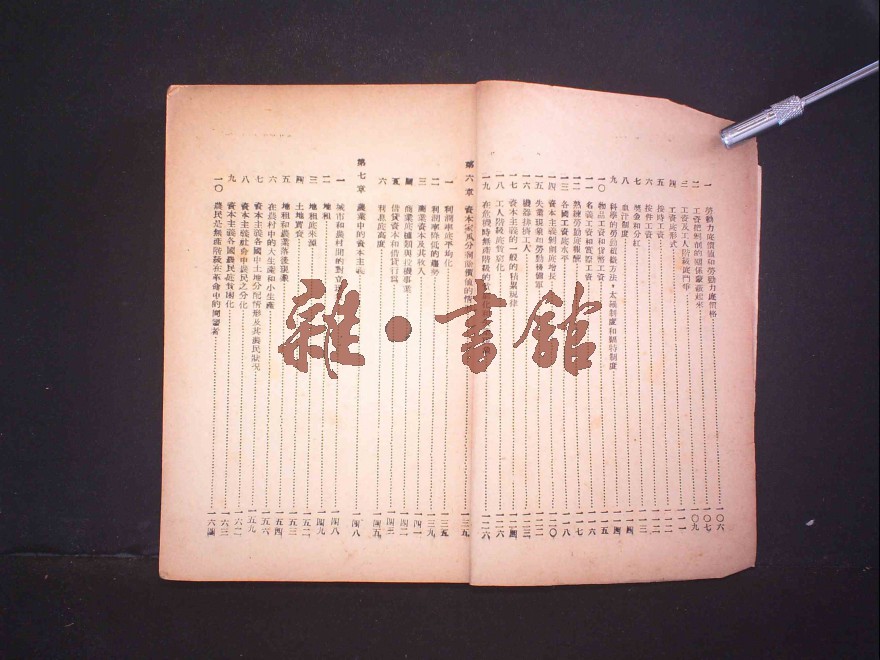 一 勞動力底價值和勞動力底價格 一〇六
二 工資把剝削的關係蒙蔽起來 一〇七
三 工資及工人階級底鬥爭 一〇九
四 工資底形式 一一一
五 按時工資 一一二
六 按件工資 一一二
七 獎金和分紅 一一三
八 血汗制度 一一四
九 科學的勞動組織方法，太羅制度和福特制度 一一四
一〇 物品工資和貨幣工資 一一五
一一 名義工資和實際工資 一一六
一二 熟練勞動底報酬 一一七
一三 各國工資底水平 一一八
一四 資本主義剝削底增長 一二〇
一五 失業現象和勞動後備軍 一二二
一六 機器排擠工人 一二三
一七 資本主義的一般的積累規律 一二四
一八 工人階級底貧窮化 一二六
一九 在危機時無產階級的 一二六
第六章 資本家瓜分剩餘價值的情 一三五
一 利潤率底平均化 一三五
二 利潤率降低的趨勢 一三九
三 商業資本及其收入 一四一
四 商業底種類與投機事業 一四二
五 借貸資本和借貸行為 一四三
六 利息底高度 一四五
第七章 農業中的資本主義 一四八
一 城市和農村間的對立 一四八
二 地租 一四九
三 地租底來源 一五二
四 土地買賣 一五三
五 地租和農業落後現象 一五四
六 在農村中的大生產和小生產 一五六
七 資本主義各國中土地分配情形及其農民狀況 一五九
八 資本主義社會中農民之分化 一六二
九 資本主義各國農民底貧困化 一六三
一〇 農民是無產階級在革命中的同盟者 一六四
雜·書館